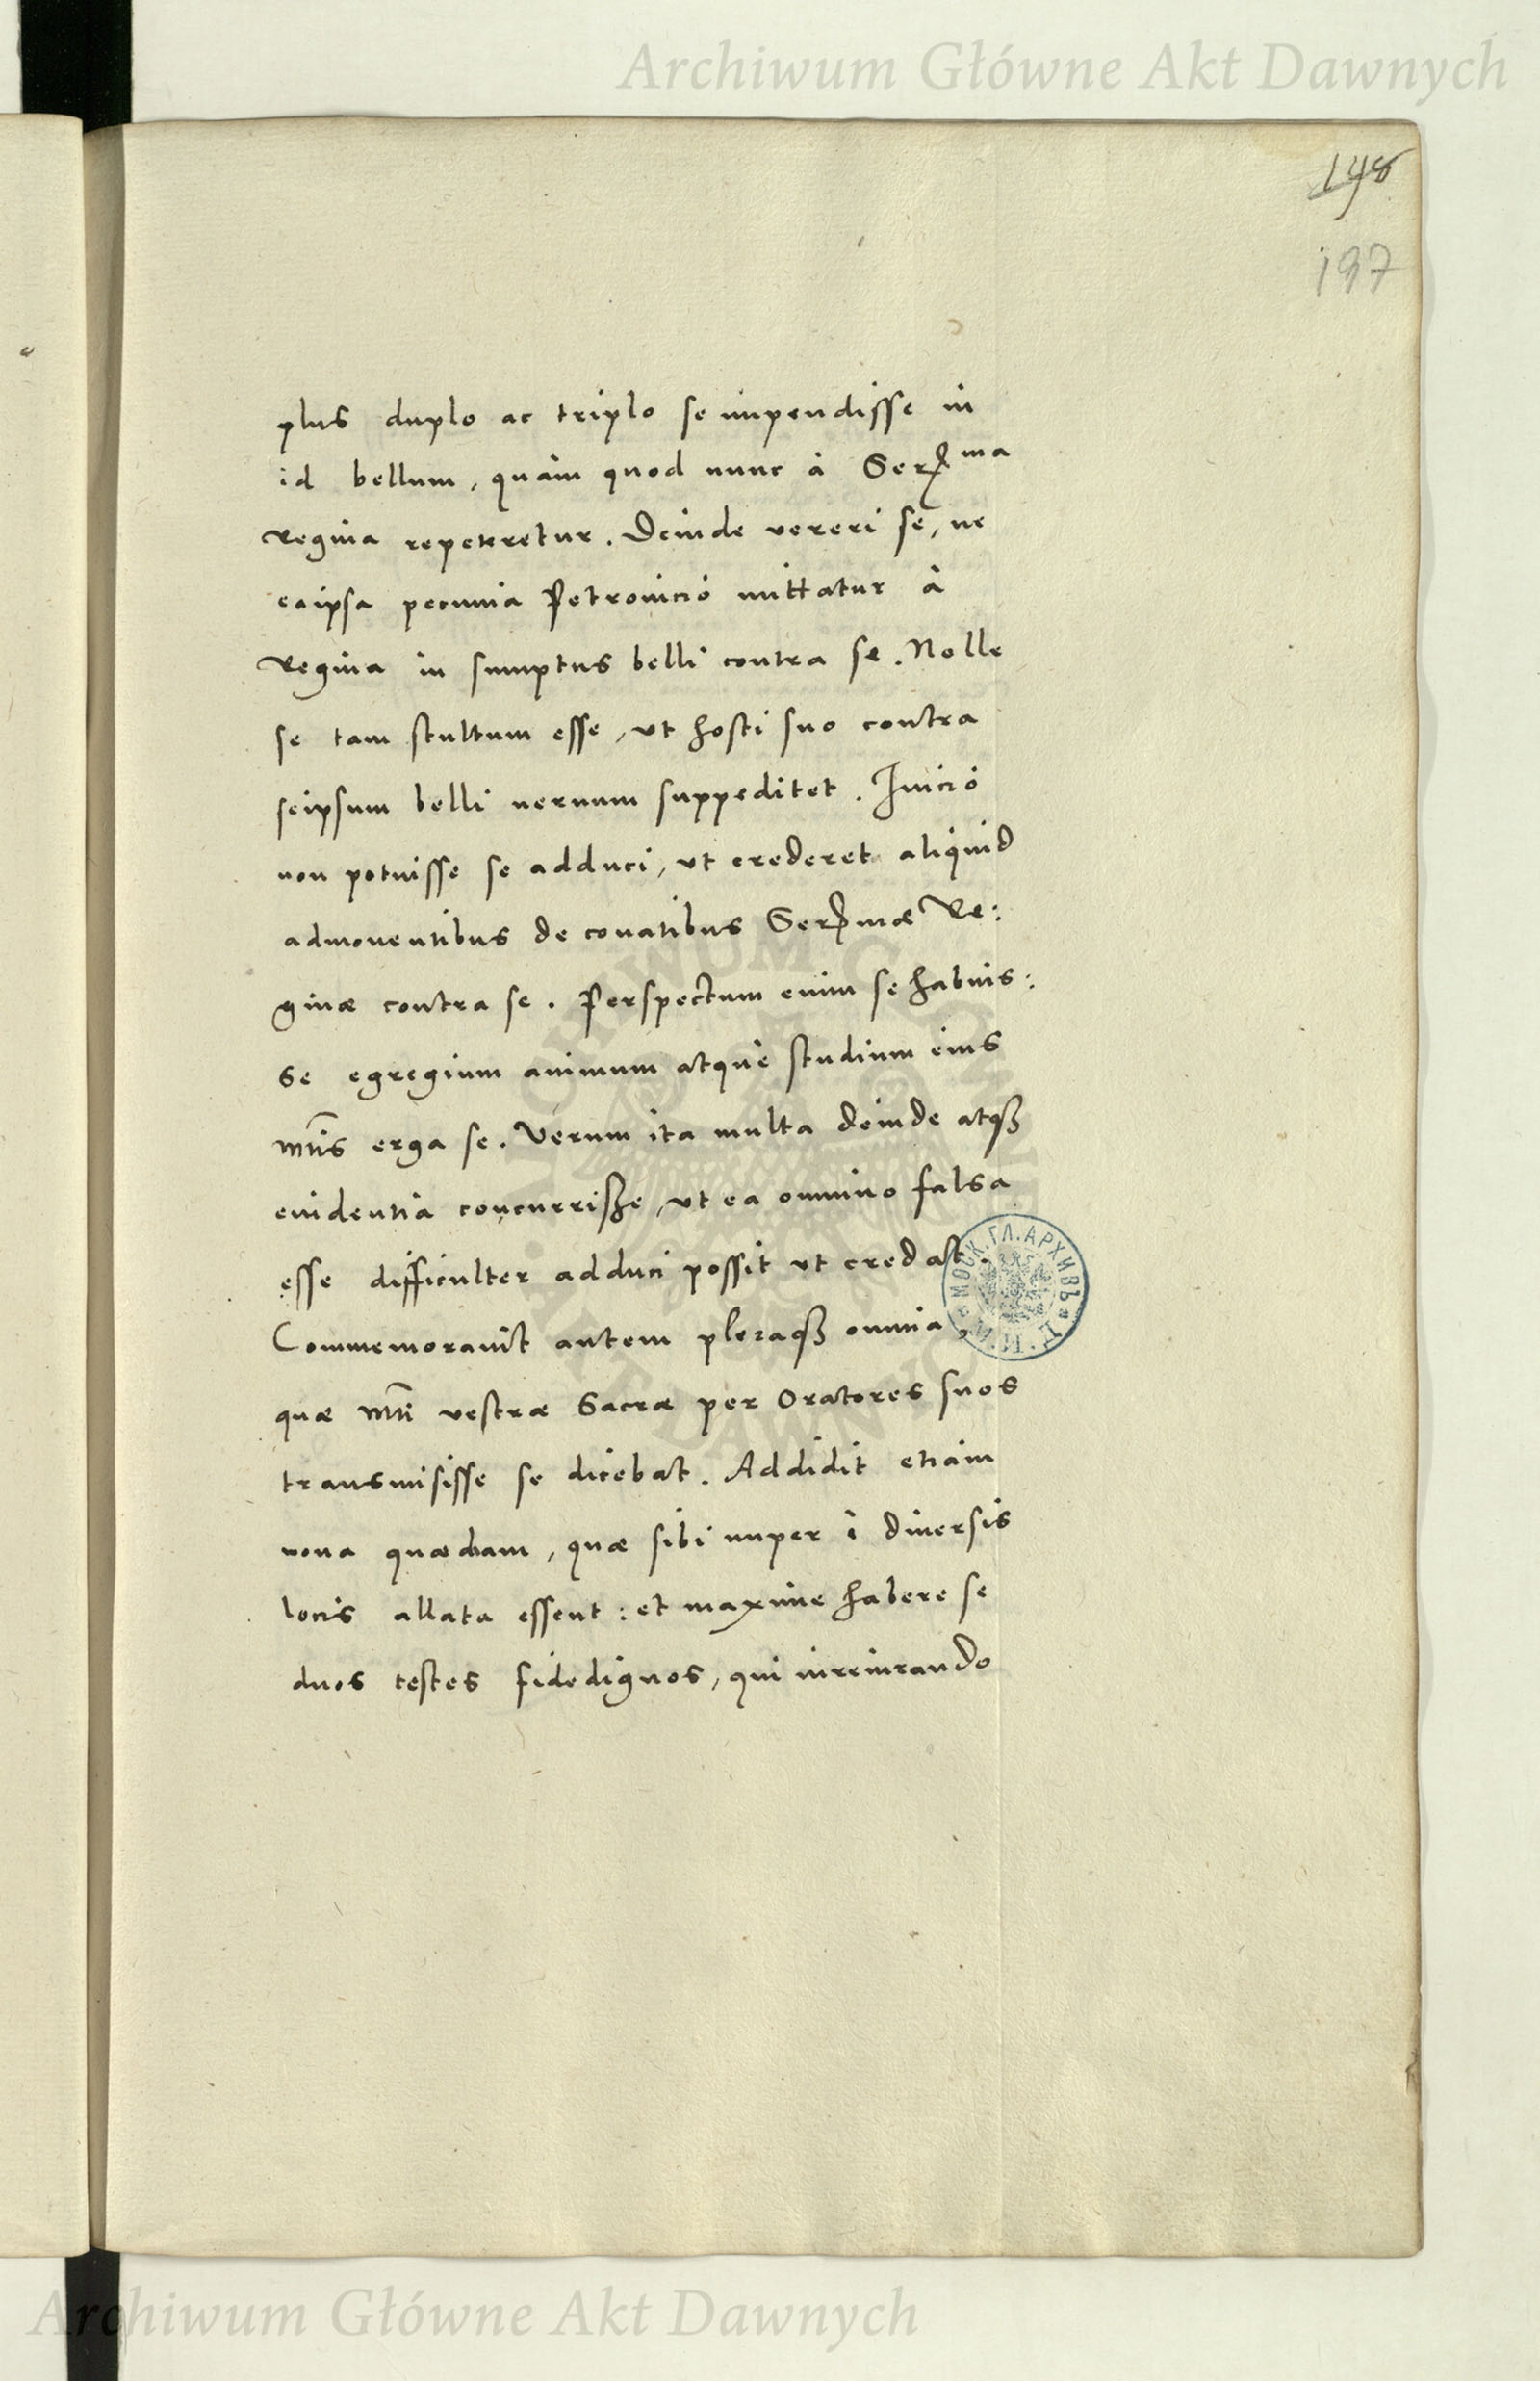 Archiwum Główne Akt Dawnych
148
197
plus duplo ac triplo se impendisse in
id bellum, quàm quod nunc à Ser.ma
Regina repeteretur. Deinde vereri se, ne
eaipsa pecunia Petrovicio mittatur à
Regina in sumptus belli contra se. Nolle
se tam stultum esse, ut hosti suo contra
seipsum belli nervum suppeditet. Inicio
non potuisse se adduci, ut crederet aliquid
admonentibus de conatibus Ser.mæ Re:
ginæ contra se. Perspectum enim se habuis:
se egregium animum atque studium eius
mtis erga se. Verum ita multa deinde atqȝ
evidentia concurriße, ut ea omnino falsa
esse difficulter adduci possit ut credat.
Commemoravit autem pleraqȝ omnia,
quæ mti vestræ Sacræ per Oratores suos
transmisisse se dicebat. Addidit etiam
nova quædam, quæ sibi nuper ì diversis
locis allata essent: et maxime habere se
duos testes fidedignos, qui iureiurando
МОСК. ГЛ. АРХИВЪ
Archiwum Główne Akt Dawnych